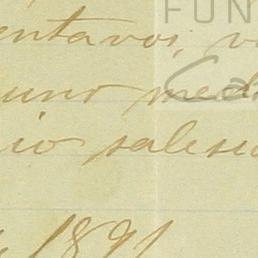 FUN
entavos, v
uno med
io sales
1891